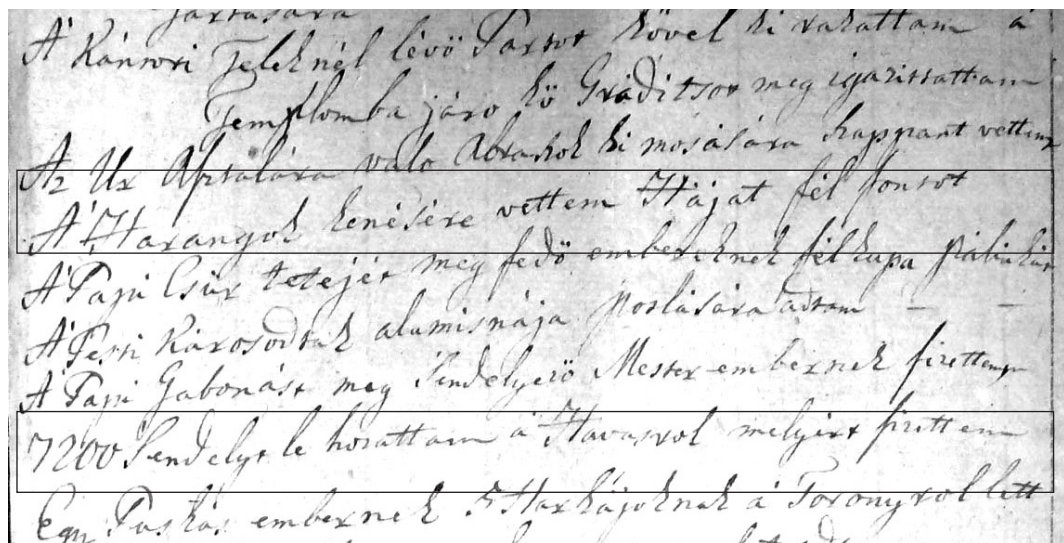 jártására
A' Kántori Teleknél lévö Partot kövel ki rakattam á
Templomba járo kö Gráditsot meg igazittattam
Az Ur Asztalára valo Abraszok ki mosására szappant vettem
A' Harangok kenésére vettem Hájat fél fontot
A' Papi Csür tetejét meg fedö embereknek fél kupa pálinkát
A' Pesti Károsodtak alamisnája postására adtam — —
A' Papi Gabonást meg sendelyezö Mester embernek fizettem
7200 Sendelyt le hozattam a' Havasrol melyért fizettem
Egy Puskás embernek 5 Harkájoknak á Toronyrol lett